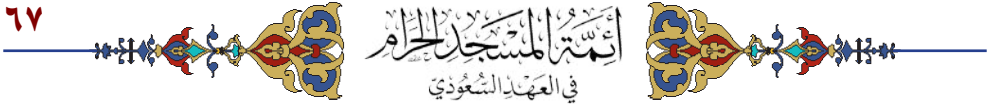 ٦٧
أَئِمَّةُ المَسْجِدِ الحَرَامِ
في العَهْدِ السُّعُودِيّ